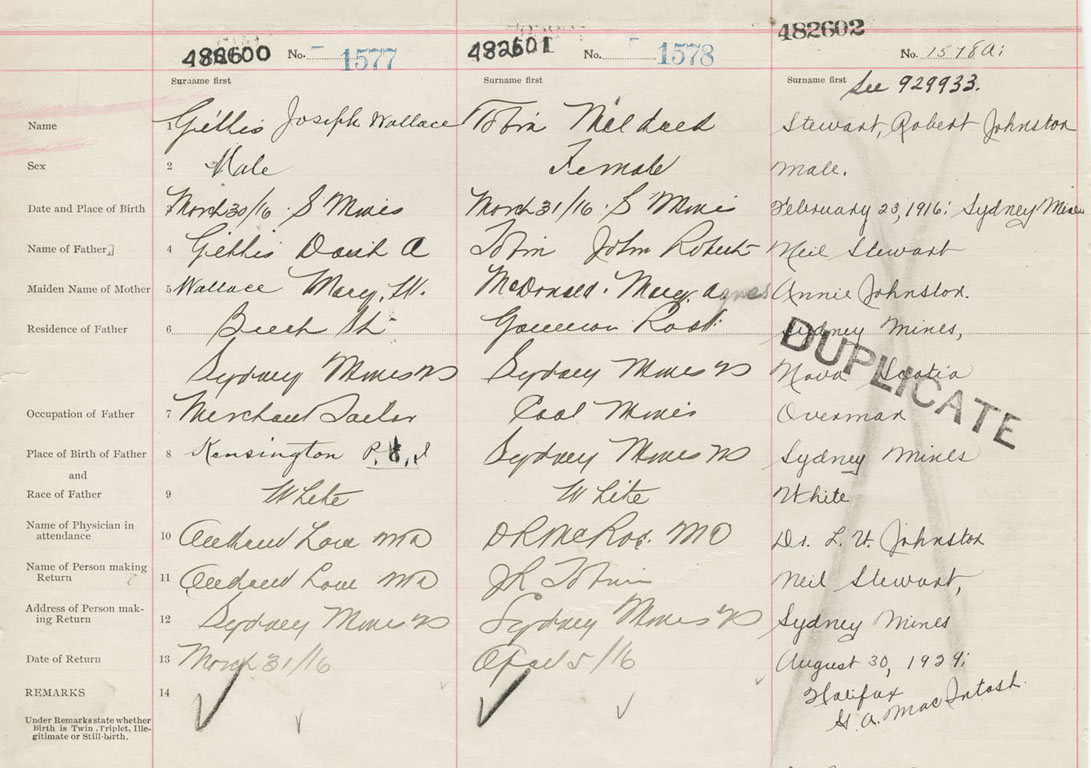 482600 No. 1577 482601 No. 1578 482602 No. 1578A;
Surname first Surname first Surname first See 929933.
Name 1 Gillis Joseph Wallace Tobin Mildred Stewart, Robert Johnston
Sex 2 Male Female Male.
Date and Place of Birth 3 March 30/16. S Mines March 31/16. S Mines February 23, 1916; Sydney Mines
Name of Father 4 Gillis David A Tobin John Robert Neil Stewart
Maiden Name of Mother 5 Wallace Mary, McDonald. Mary. Agnes Annie Johnston.
Residence of Father 6 Beech St Sydney Mines,
Sydney Mines NS Sydney Mines NS Nova Scotia
DUPLICATE
Occupation of Father 7 Merchant Tailor Coal Mines Overman
Place of Birth of Father 8 Kensington P.E.I Sydney Mines NS Sydney Mines
and
Race of Father 9 White White White
Name of Physician in
attendance 10 Andrew Love MD MD Dr. L. W. Johnston
Name of Person making
Return 11 Andrew Love MD JR Tobin Neil Stewart,
Address of Person mak-
ing Return 12 Sydney Mines NS Sydney Mines NS Sydney Mines
Date of Return 13 March 31/16 April 5/16 August 30, 1924;
REMARKS 14 Halifax
G. A. MacIntosh
Under Remarks state whether
Birth is Twin, Triplet, Ille-
gitimate or Still-birth.